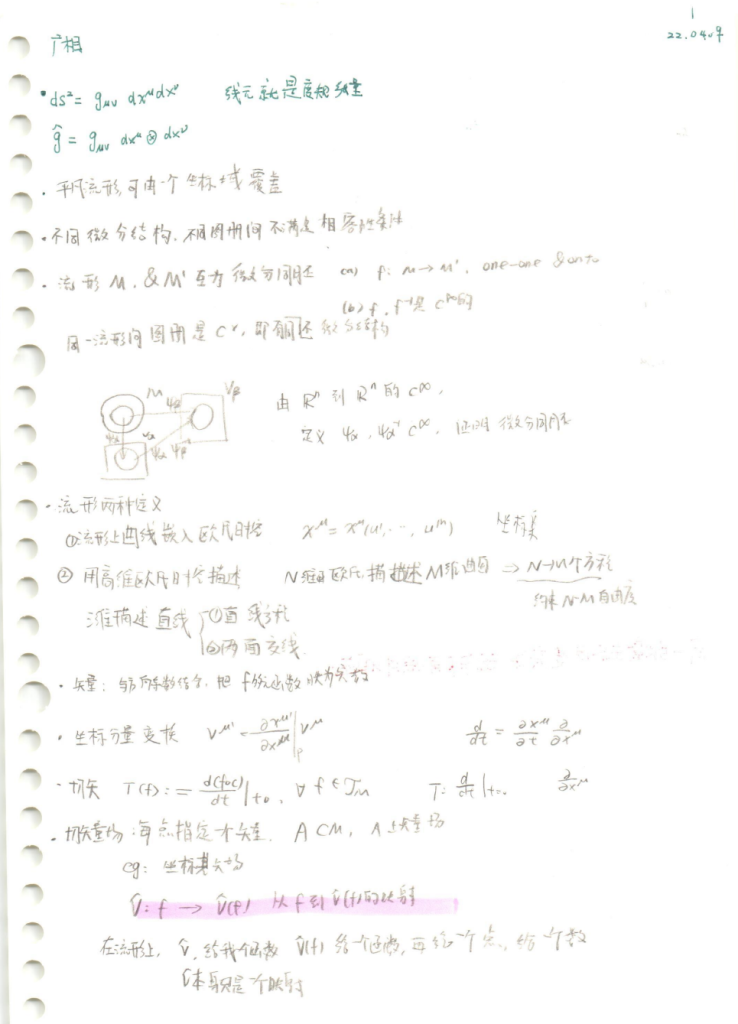 1
22.04.09
广相
· ds² = gμν dx^μ dx^ν 线元就是度规张量
ĝ = gμν dx^μ ⊗ dx^ν
· 平凡流形,可由一个坐标域覆盖
· 不同微分结构,不同图册间不满足相容性条件
· 流形 M, & M' 互为微分同胚 (a) f: M → M', one-one & onto
(b) f, f⁻¹是 C^∞的
同一流形间图册是 C^r, 即 微分结构
M Vβ
ψα ψβ
由 R^n 到 R^n 的 C^∞,
定义 ψα, ψα⁻¹ C^∞, 证明 微分同胚
· 流形两种定义
①流形上曲线嵌入欧氏时空 x^μ = x^μ(u', ···, u^m) 坐标集
② 用高维欧氏时空描述 N维欧氏描述M维曲面 ⇒ N-M个方程
约束 N-M 自由度
三维描述直线 { ①直线方程
②两面交线
· 矢量: 方向导数信息, 把 f 函数映为实数
· 坐标分量变换 v^μ' = ∂x^μ'/∂x^μ |p v^μ d/dt = ∂x^μ/∂t ∂/∂x^μ
· 切矢 T(f) := d(f∘c)/dt |t₀, ∀ f ∈ F_M T: d/dt |t₀. ∂/∂x^μ
· 切矢量场: 每点指定一个矢量. A ⊂ M, A上矢量场
eg: 坐标基矢场
v̂: f → v̂(f) 从 f 到 v̂(f)的映射
在流形上, v̂, 给我个函数 v̂(f) 给一个函数, 再给一个点, 给一个数
v̂本身只是一个映射